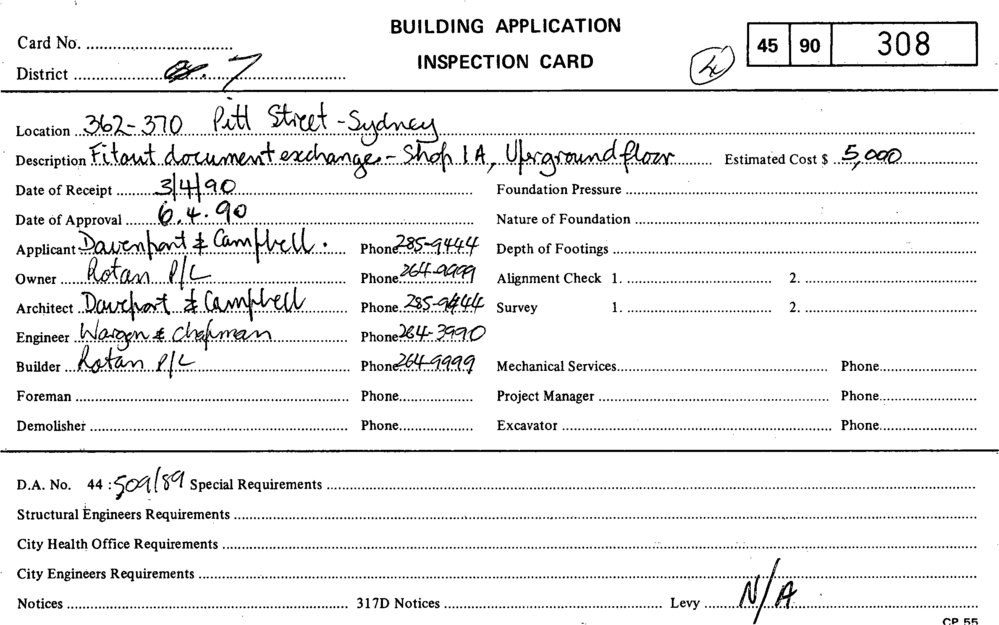 BUILDING APPLICATION
INSPECTION CARD
Card No.
District 7
45 90 308
Location 362-370 Pitt Street - Sydney
Description Fitout document exchange - Shop 1A, Uperground floor Estimated Cost $ 5,000
Date of Receipt 3/4/90 Foundation Pressure
Date of Approval 6.4.90 Nature of Foundation
Applicant Davenport & Campbell. Phone 285-9444 Depth of Footings
Owner Rotan P/L Phone 264-9999 Alignment Check 1. 2.
Architect Davenport & Campbell Phone 285-9444 Survey 1. 2.
Engineer Wargon & Chapman Phone 264-3990
Builder Rotan P/L Phone 264-9999 Mechanical Services Phone
Foreman Phone Project Manager Phone
Demolisher Phone Excavator Phone
D.A. No. 44 : 509/89 Special Requirements
Structural Engineers Requirements
City Health Office Requirements
City Engineers Requirements
Notices 317D Notices Levy N/A
CP 55